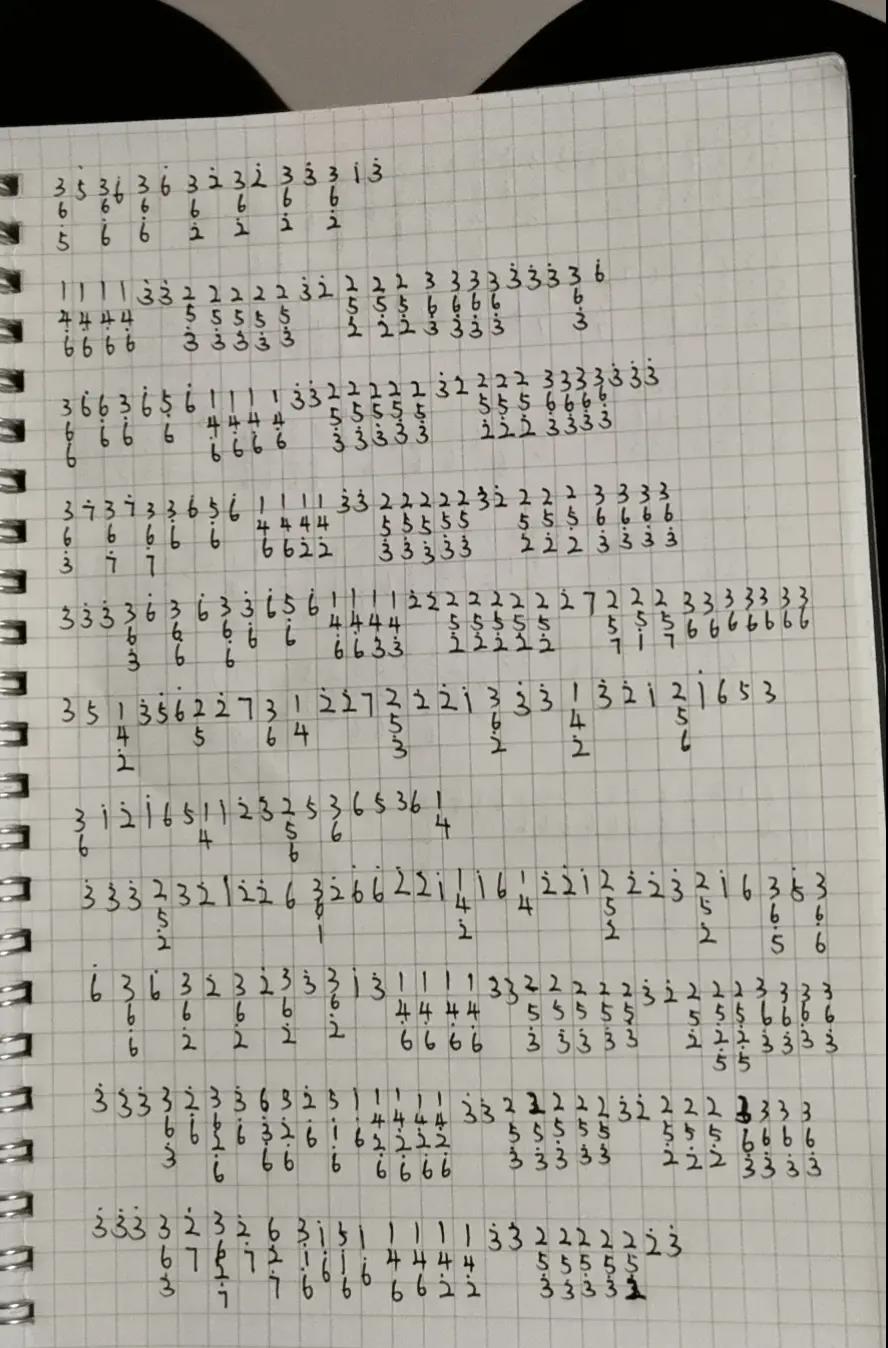 3 5̇ 3 6̇ 3 6̇ 3 2̇ 3 2̇ 3 3̇ 3 1̇ 3̇
6 6 6 6 6 6 6
5̇ 6̇ 6̇ 2̇ 2̇ 2̇ 2̇
1 1 1 1 3̇ 3̇ 2 2 2 2 2 3̇ 2̇ 2 2 2 3 3 3 3 3̇ 3̇ 3̇ 3 6̇
4 4 4 4 5 5 5 5 5 5 5 5 6 6 6 6 6
6̇ 6̇ 6̇ 6̇ 3̇ 3̇ 3̇ 3̇ 3̇ 2̇ 2̇ 2̇ 3̇ 3̇ 3̇ 3̇ 3̇
3 6̇ 6̇ 3 6̇ 5̇ 6̇ 1 1 1 1 3̇ 3̇ 2 2 2 2 2 3̇ 2̇ 2 2 2 3 3 3 3 3̇ 3̇ 3̇
6 6 6 6 4 4 4 4 5 5 5 5 5 5 5 5 6 6 6 6
6̇ 6̇ 6̇ 6̇ 6̇ 6̇ 3̇ 3̇ 3̇ 3̇ 3̇ 2̇ 2̇ 2̇ 3̇ 3̇ 3̇ 3̇
3 7̇ 3 7̇ 3 3̇ 6 5̇ 6̇ 1 1 1 1 3̇ 3̇ 2 2 2 2 2 3̇ 2̇ 2 2 2 3 3 3 3
6 6 6 6 6 4 4 4 4 5 5 5 5 5 5 5 5 6 6 6 6
3̇ 7̇ 7̇ 6̇ 6̇ 2̇ 2̇ 3̇ 3̇ 3̇ 3̇ 3̇ 2̇ 2̇ 2̇ 3̇ 3̇ 3̇ 3̇
3̇ 3̇ 3̇ 3 6̇ 3 6̇ 3 3̇ 6̇ 5̇ 6̇ 1 1 1 1 2̇ 2̇ 2 2 2 2 2 2̇ 7 2 2 2 3 3 3 3 3 3
6 6 6 6 6 4 4 4 4 5 5 5 5 5 5 5 5 6 6 6 6 6 6
3̇ 6̇ 6̇ 6̇ 6̇ 3̇ 3̇ 2̇ 2̇ 2̇ 2̇ 2̇ 7 1̇ 7
3 5 1 3̇ 5̇ 6̇ 2 2̇ 7 3 1 2̇ 2̇ 7 2 2̇ 2̇ 1̇ 3 3̇ 3̇ 1 3̇ 2̇ 1̇ 2 1̇ 6 5 3
4 5 6 4 5 6 4 5
2̇ 3̇ 2̇ 2̇ 6̇
3 1̇ 2̇ 1̇ 6 5 1 1̇ 2̇ 3̇ 2 5 3 6 5 3 6 1
6 4 5 6 4
6
3̇ 3̇ 3̇ 2 3̇ 2̇ 1̇ 2̇ 2̇ 6 3 2̇ 6̇ 6̇ 2̇ 2̇ 1̇ 1 1̇ 6 1 2̇ 2̇ 1̇ 2 2̇ 2̇ 3̇ 2 1̇ 6 3 5̇ 3
5 6 4 4 5 5 6 6
2̇ 1 2̇ 2̇ 2̇ 5̇ 6̇
6̇ 3 6̇ 3 2̇ 3 2̇ 3 3̇ 3 1̇ 3̇ 1 1 1 1 3̇ 3̇ 2 2 2 2 2 3̇ 2̇ 2 2 2 3 3 3 3
6 6 6 6 6 4 4 4 4 5 5 5 5 5 5 5 5 6 6 6 6
6̇ 2̇ 2̇ 2̇ 2̇ 6̇ 6̇ 6̇ 6̇ 3̇ 3̇ 3̇ 3̇ 3̇ 2̇ 2̇ 2̇ 3̇ 3̇ 3̇ 3̇
5̇ 5̇
3̇ 3̇ 3̇ 3 2̇ 3 3̇ 6 3 2̇ 5 1 1 1 1 1 3̇ 3̇ 2 2 2 2 2 3̇ 2̇ 2 2 2 3 3 3 3
6 6̇ 6 6̇ 3̇ 2̇ 6̇ 1̇ 6̇ 4 4 4 4 5 5 5 5 5 5 5 5 6 6 6 6
3̇ 2̇ 6̇ 6̇ 6̇ 2̇ 2̇ 2̇ 2̇ 3̇ 3̇ 3̇ 3̇ 3̇ 2̇ 2̇ 2̇ 3̇ 3̇ 3̇ 3̇
6̇ 6̇ 6̇ 6̇ 6̇
3̇ 3̇ 3̇ 3 2̇ 3 2̇ 6 3 1̇ 5 1̇ 1 1 1 1 3̇ 3̇ 2 2 2 2 2 2̇ 3̇
6 7 6 7 2̇ 1̇ 6̇ 1̇ 6̇ 4 4 4 4 5 5 5 5 5
3̇ 2̇ 7̇ 6̇ 6̇ 6̇ 6̇ 2̇ 2̇ 3̇ 3̇ 3̇ 3̇ 2̇
7̇